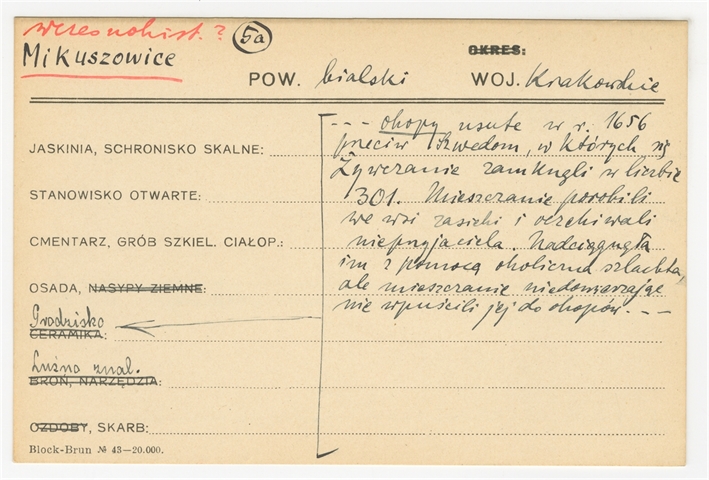 wczesnohist. ? 5a
Mikuszowice
OKRES:
POW. bialski WOJ. Krakowskie
JASKINIA, SCHRONISKO SKALNE:
STANOWISKO OTWARTE:
CMENTARZ, GRÓB SZKIEL. CIAŁOP.:
OSADA, NASYPY ZIEMNE:
Grodzisko
CERAMIKA:
Luźna znal.
BROŃ, NARZĘDZIA:
OZDOBY, SKARB:
Block-Brun № 43—20.000.
- - - okopy usute w r. 1656
przeciw Szwedom, w których się
Żywczanie zamknęli w liczbie
301. Mieszczanie porobili
we wsi zasieki i oczekiwali
nieprzyjaciela. Nadciągnęła
im z pomocą okoliczna szlachta,
ale mieszczanie niedowarzając
nie wpuścili jej do okopów. - - -